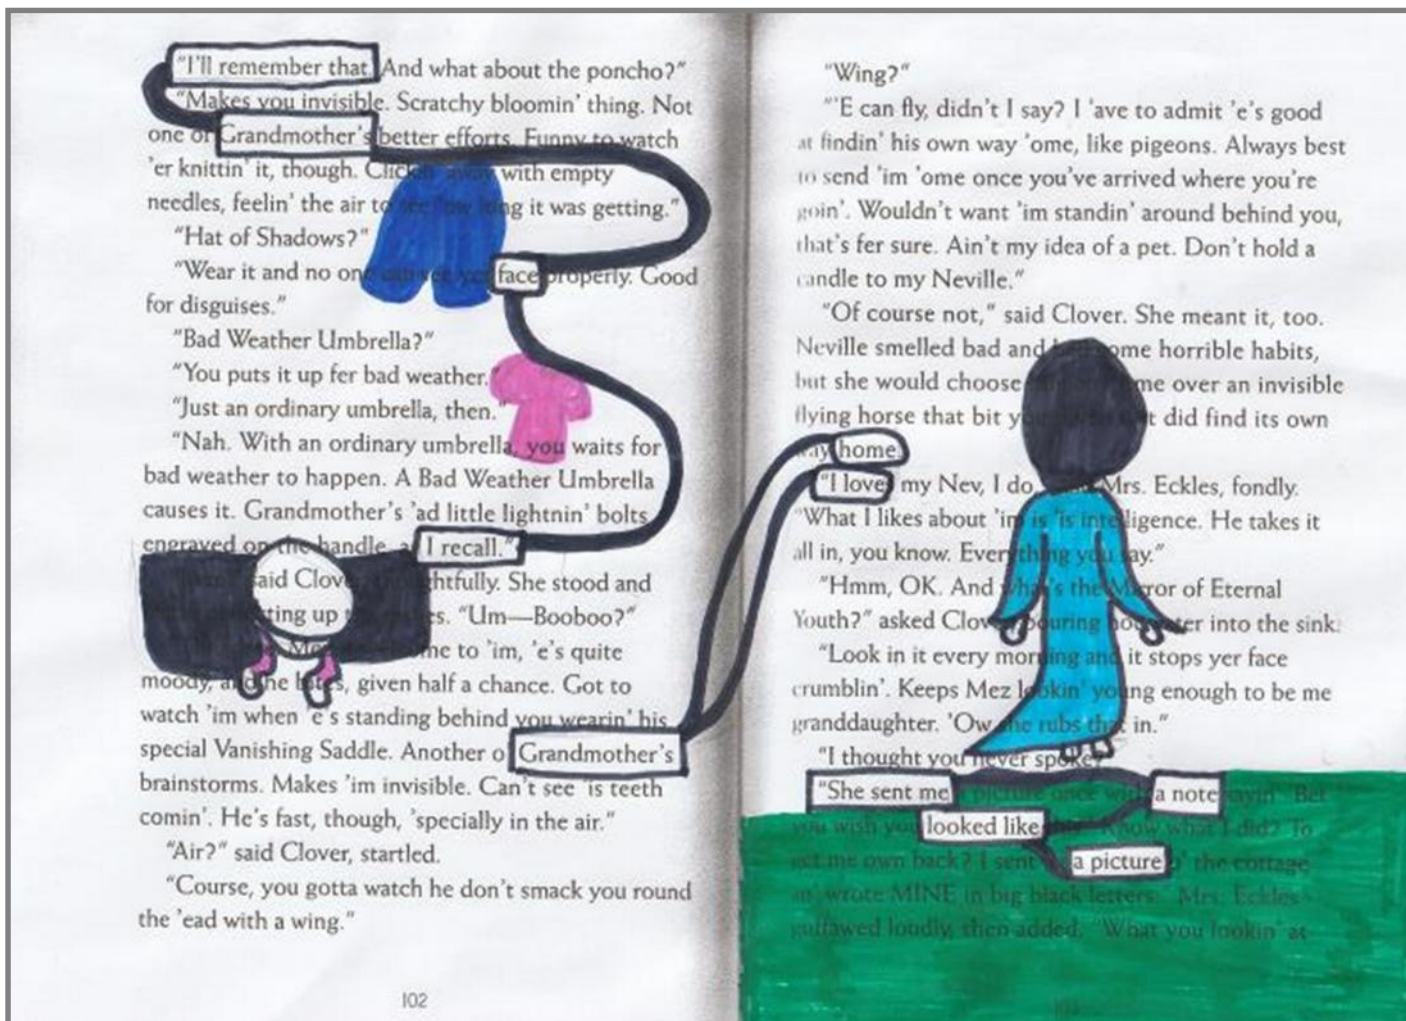 "I'll remember that. And what about the poncho?"
"Makes you invisible. Scratchy bloomin' thing. Not
one of Grandmother's better efforts. Funny to watch
'er knittin' it, though. with empty
needles, feelin' the air to it was getting."
"Hat of Shadows?"
"Wear it and no one face properly. Good
for disguises."
"Bad Weather Umbrella?"
"You puts it up fer bad weather."
"Just an ordinary umbrella, then."
"Nah. With an ordinary umbrella, you waits for
bad weather to happen. A Bad Weather Umbrella
causes it. Grandmother's 'ad little lightnin' bolts
engraved on the handle, I recall."
said Clover thoughtfully. She stood and
up "Um—Booboo?"
to 'im, 'e's quite
moody, and he bites, given half a chance. Got to
watch 'im when 'e's standing behind you wearin' his
special Vanishing Saddle. Another o' Grandmother's
brainstorms. Makes 'im invisible. Can't see 'is teeth
comin'. He's fast, though, 'specially in the air."
"Air?" said Clover, startled.
"Course, you gotta watch he don't smack you round
the 'ead with a wing."
102
"Wing?"
"'E can fly, didn't I say? I 'ave to admit 'e's good
at findin' his own way 'ome, like pigeons. Always best
to send 'im 'ome once you've arrived where you're
goin'. Wouldn't want 'im standin' around behind you,
that's fer sure. Ain't my idea of a pet. Don't hold a
candle to my Neville."
"Of course not," said Clover. She meant it, too.
Neville smelled bad and some horrible habits,
but she would choose over an invisible
flying horse that bit did find its own
way home.
"I love my Nev, I do, Mrs. Eckles, fondly.
"What I likes about 'im is 'is intelligence. He takes it
all in, you know. Everything you say."
"Hmm, OK. And what's the Mirror of Eternal
Youth?" asked Clover, pouring hot water into the sink.
"Look in it every morning and it stops yer face
crumblin'. Keeps Mez lookin' young enough to be me
granddaughter. 'Ow she rubs that in."
"I thought you never spoke?"
"She sent me a picture once with a note sayin' Bet
you wish you looked like Know what I did? To
get me own back? I sent a picture o' the cottage
an' wrote MINE in big black letters." Mrs. Eckles
guffawed loudly, then added, "What you lookin' at
103